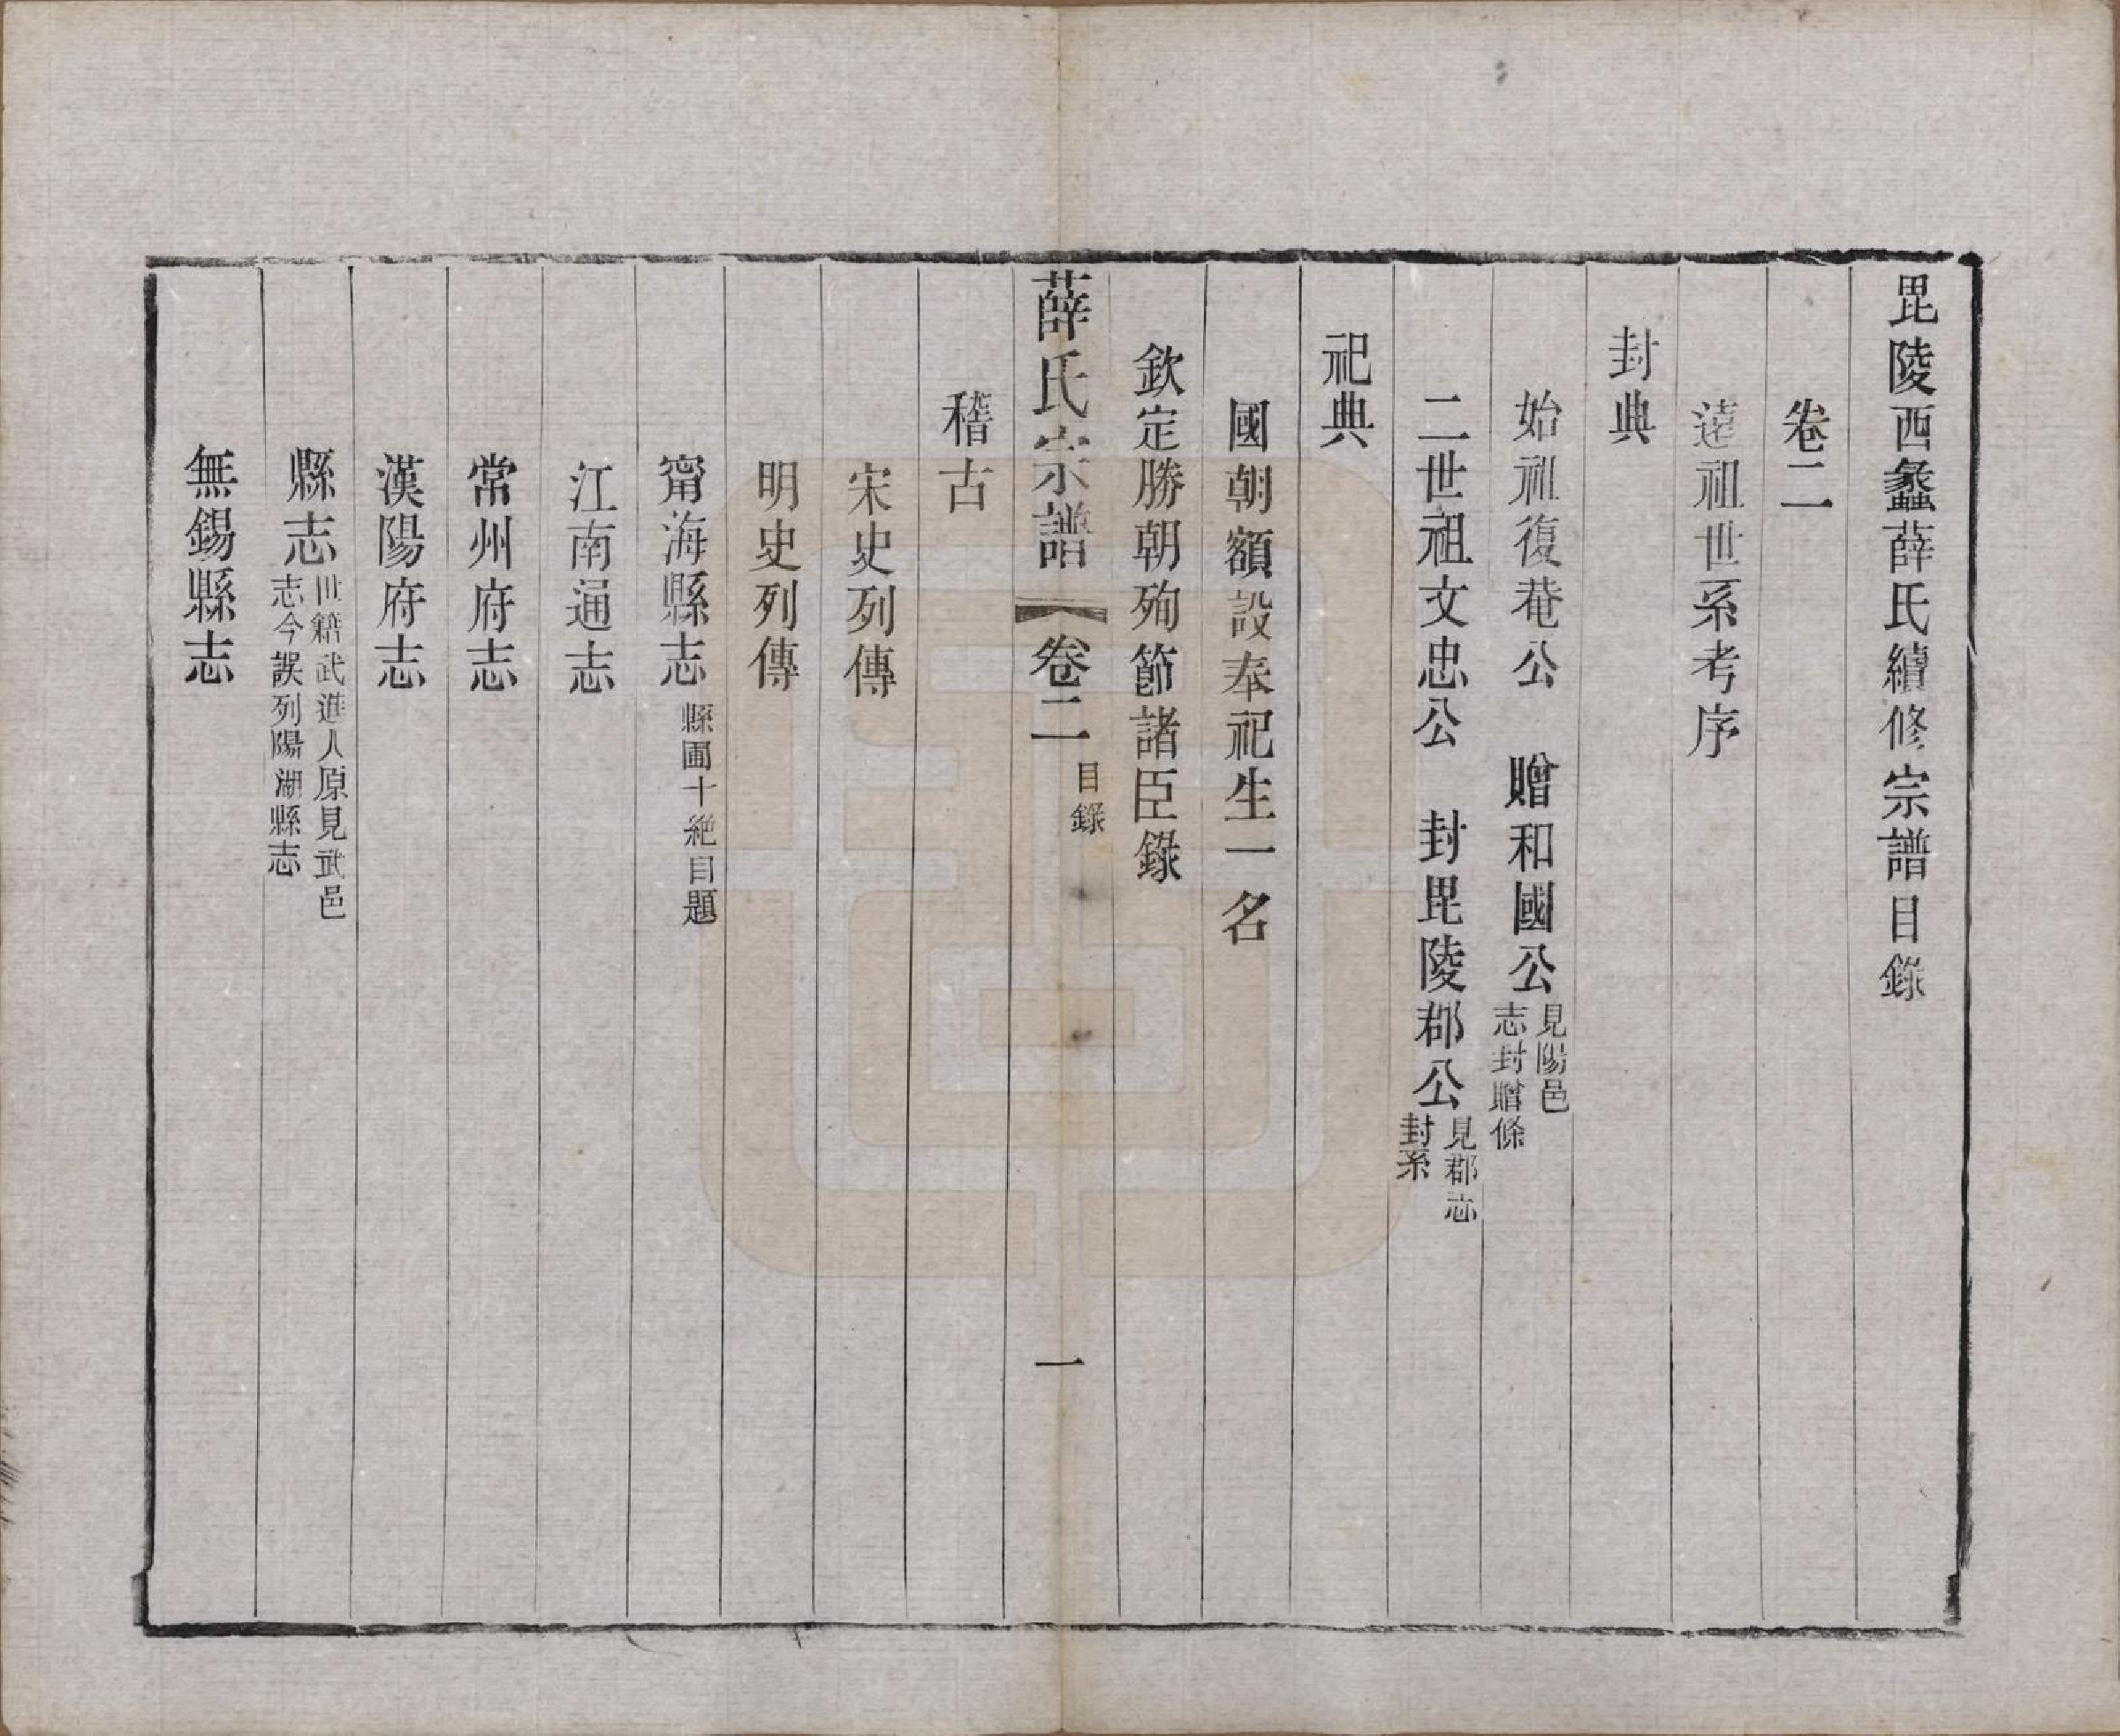 毘陵西蠡薛氏續修宗譜目錄
卷二
遠祖世系考序
封典
始祖復菴公　贈和國公見陽邑志封贈條
二世祖文忠公　封毘陵郡公見郡志封系
祀典
國朝額設奉祀生一名
欽定勝朝殉節諸臣錄
薛氏宗譜　卷二　目錄　一
稽古
宋史列傳
明史列傳
甯海縣志縣圃十絶自題
江南通志
常州府志
漢陽府志
縣志世籍武進人原見武邑志今誤列陽湖縣志
無錫縣志